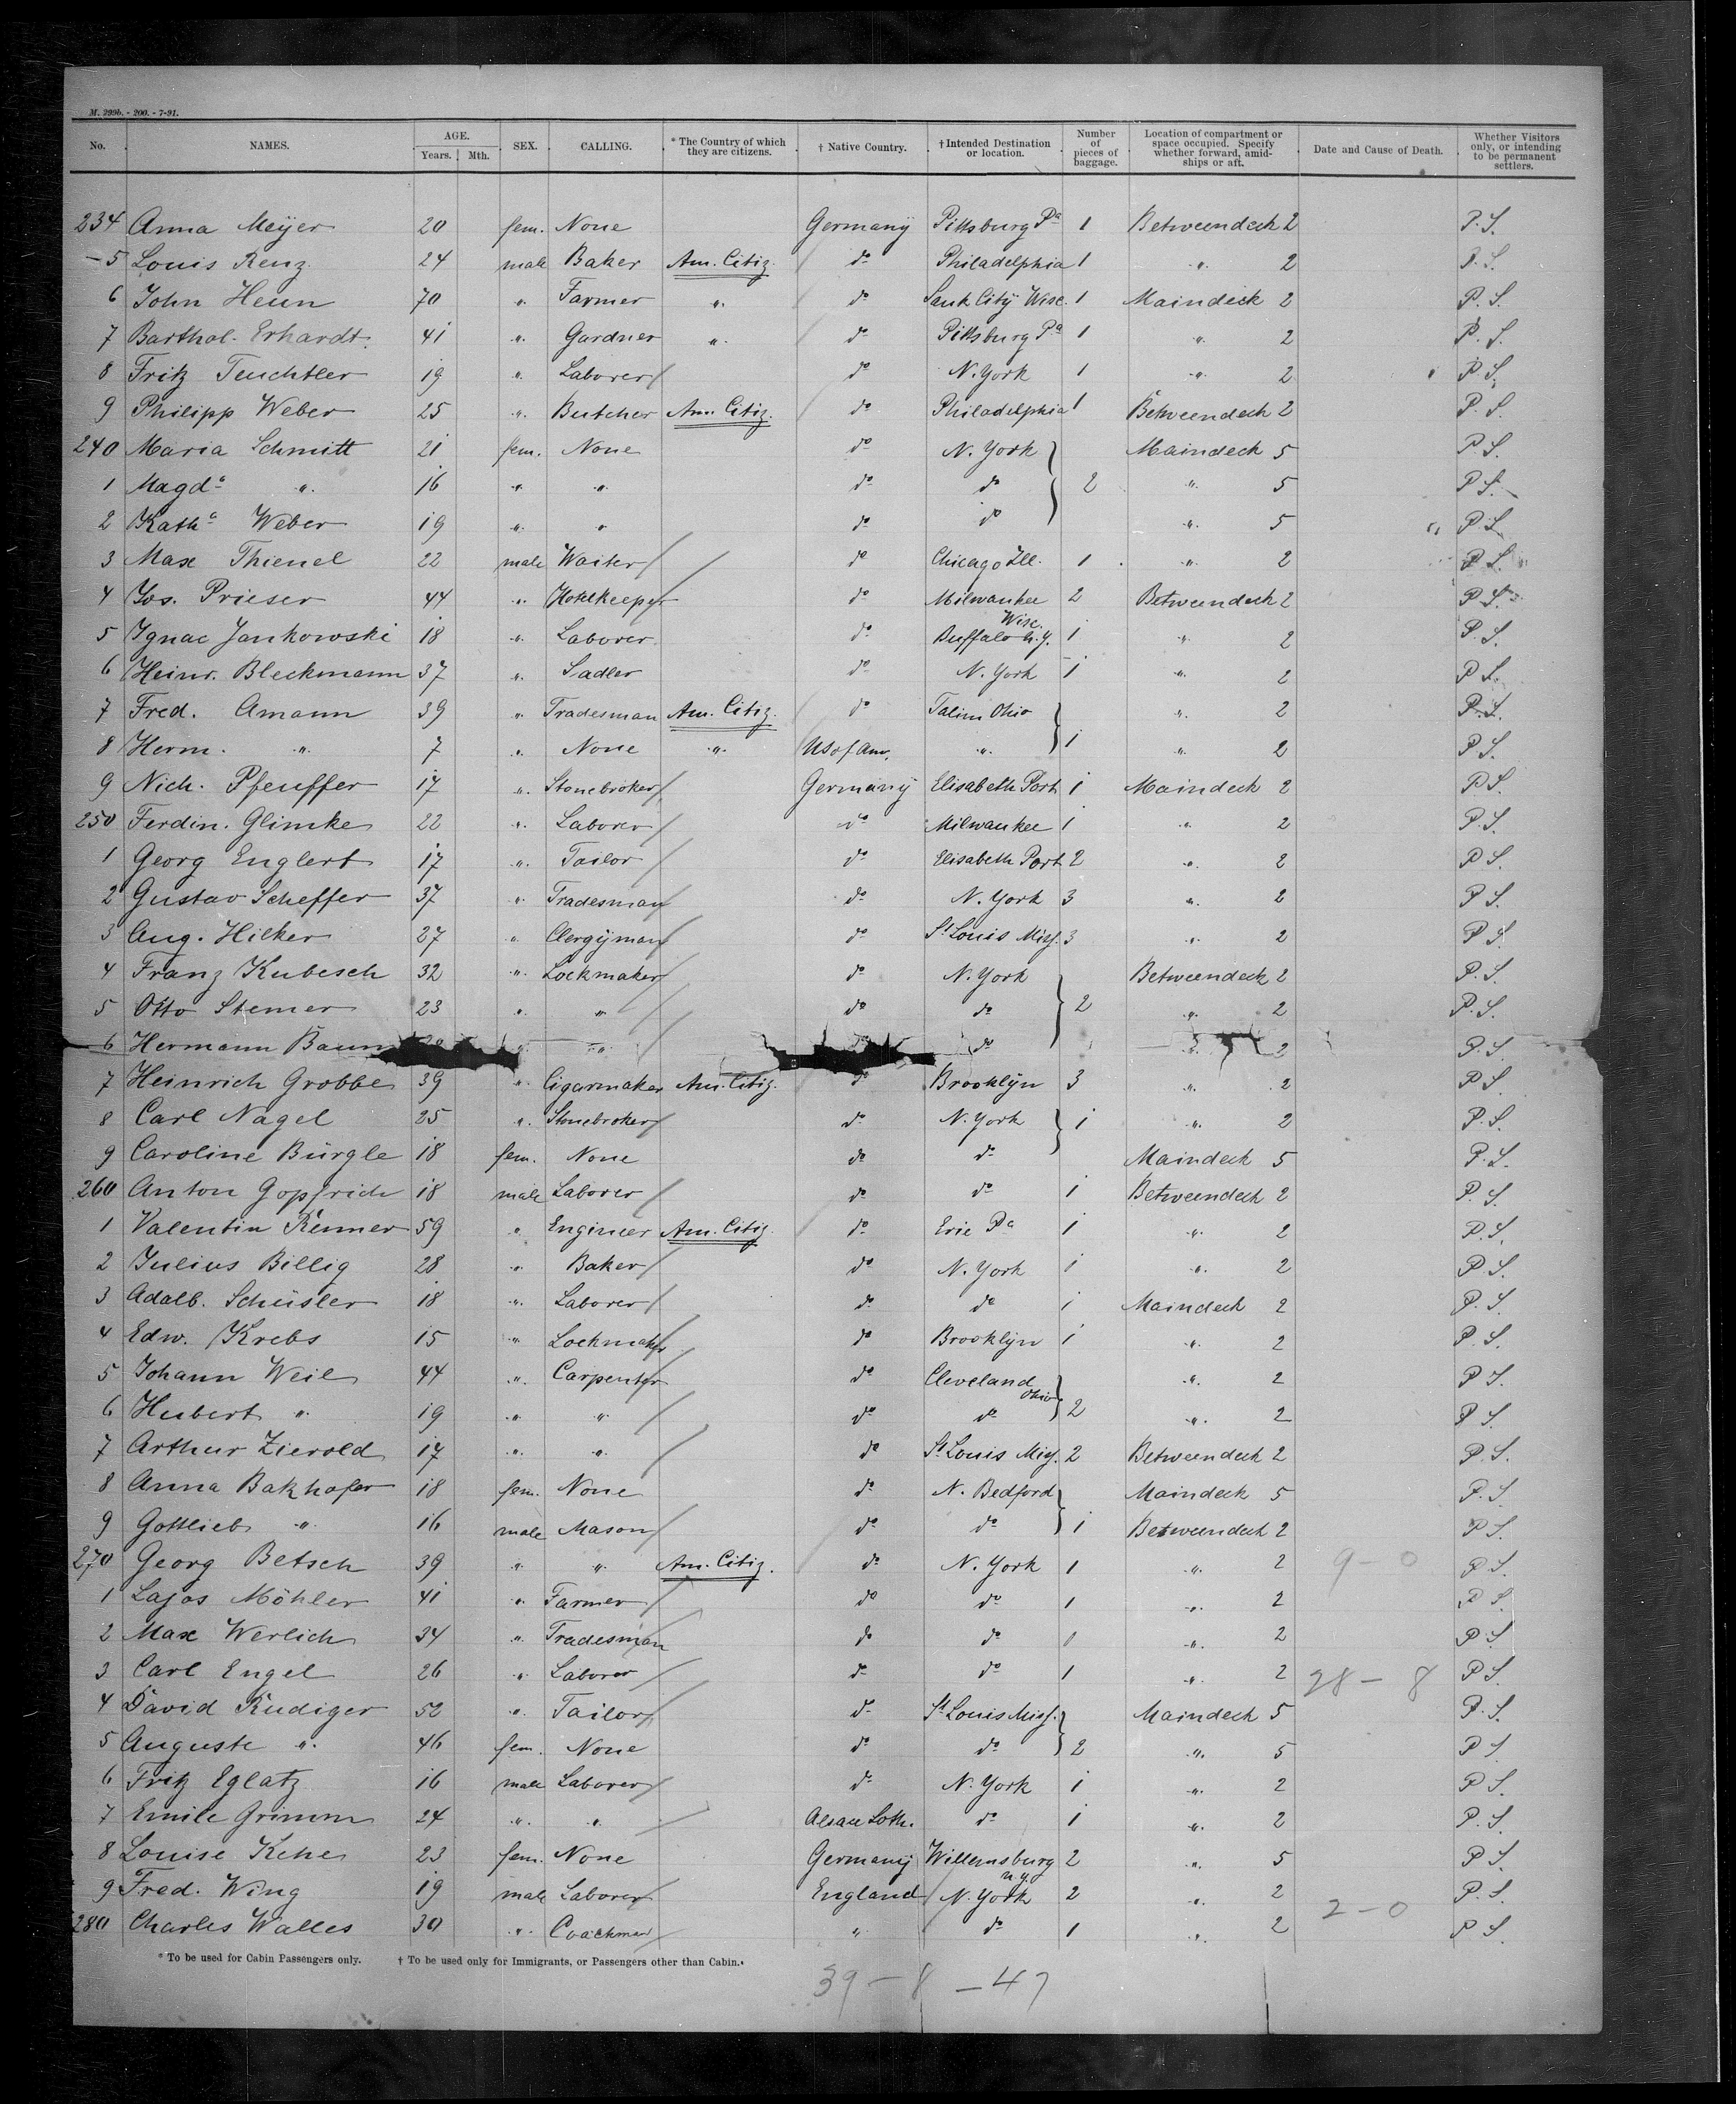 M. 299b. - 200. - 7-91.
No. NAMES. AGE. Years. Mth. SEX. CALLING. * The Country of which they are citizens. † Native Country. † Intended Destination or location. Number of pieces of baggage. Location of compartment or space occupied. Specify whether forward, amidships or aft. Date and Cause of Death. Whether Visitors only, or intending to be permanent settlers.
234 Anna Meÿer 20 fem. None Germanÿ Pittsburg Pa 1 Betweendeck 2 P.S.
5 Louis Renz 24 male Baker Am. Citiz. do Philadelphia 1 " 2 P.S.
6 John Heun 70 " Farmer " do Sauk Citÿ Wisc. 1 Maindeck 2 P.S.
7 Barthol. Erhardt 41 " Gardner " do Pittsburg Pa 1 " 2 P.S.
8 Fritz Teuchtler 19 " Laborer do N. York 1 " 2 P.S.
9 Philipp Weber 25 " Butcher Am. Citiz. do Philadelphia 1 Betweendeck 2 P.S.
240 Maria Schmitt 21 fem. None do N. York Maindeck 5 P.S.
1 Magda " 16 " " do do 2 " 5 P.S.
2 Katha Weber 19 " " do do " 5 P.S.
3 Max Thienel 22 male Waiter do Chicago Ill. 1 " 2 P.S.
4 Jos. Prieser 44 " Hotelkeeper do Milwaukee Wisc. 2 Betweendeck 2 P.S.
5 Ignac Jankowski 18 " Laborer do Buffalo N.Y. 1 " 2 P.S.
6 Heinr. Bleckmann 37 " Sadler do N. York 1 " 2 P.S.
7 Fred. Amann 39 " Tradesman Am. Citiz. do Talim Ohio " 2 P.S.
8 Herm. " 7 " None " US of Am. " 1 " 2 P.S.
9 Nich. Pfeuffer 17 " Stonebroker Germanÿ Elisabeth Port 1 Maindeck 2 P.S.
250 Ferdin. Glimke 22 " Laborer do Milwaukee 1 " 2 P.S.
1 Georg Englert 17 " Tailor do Elisabeth Port 2 " 2 P.S.
2 Gustav Scheffer 37 " Tradesman do N. York 3 " 2 P.S.
3 Aug. Hilker 27 " Clergÿman do St Louis Miss. 3 " 2 P.S.
4 Franz Kubesch 32 " Lockmaker do N. York Betweendeck 2 P.S.
5 Otto Stemer 23 " " do do 2 " 2 P.S.
6 Hermann Baum " " do " 2 P.S.
7 Heinrich Grobbe 39 " Cigarmaker Am. Citiz. do Brooklÿn 3 " 2 P.S.
8 Carl Nagel 25 " Stonebroker do N. York 1 " 2 P.S.
9 Caroline Bürgle 18 fem. None do do Maindeck 5 P.S.
260 Anton Gopfrich 18 male Laborer do do 1 Betweendeck 2 P.S.
1 Valentin Renner 59 " Engineer Am. Citiz. do Erie Pa 1 " 2 P.S.
2 Julius Billig 28 " Baker do N. York 1 " 2 P.S.
3 Adalb. Schüsler 18 " Laborer do do 1 Maindeck 2 P.S.
4 Edw. Krebs 15 " Lockmaker do Brooklÿn 1 " 2 P.S.
5 Johann Weil 44 " Carpenter do Cleveland Ohio " 2 P.S.
6 Hubert " 19 " " do do 2 " 2 P.S.
7 Arthur Zierold 17 " " do St Louis Miss. 2 Betweendeck 2 P.S.
8 Anna Bakhofer 18 fem. None do N. Bedford Maindeck 5 P.S.
9 Gottlieb " 16 male Mason do do 1 Betweendeck 2 P.S.
270 Georg Betsch 39 " " Am. Citiz. do N. York 1 " 2 9 - 0 P.S.
1 Lajos Möhler 41 " Farmer do do 1 " 2 P.S.
2 Max Werlich 34 " Tradesman do do 1 " 2 P.S.
3 Carl Engel 26 " Laborer do do 1 " 2 28 - 8 P.S.
4 David Rudiger 52 " Tailor do St Louis Miss. Maindeck 5 P.S.
5 Auguste " 46 fem. None do do 2 " 5 P.S.
6 Fritz Eglatz 16 male Laborer do N. York 1 " 2 P.S.
7 Emile Grimm 24 " " Alsace Loth. do 1 " 2 P.S.
8 Louise Kehe 23 fem. None Germanÿ Willemsburg N.Y. 2 " 5 P.S.
9 Fred. Wing 19 male Laborer England N. York 2 " 2 P.S.
280 Charles Walles 30 " Coachman " do 1 " 2 2 - 0 P.S.
* To be used for Cabin Passengers only. † To be used only for Immigrants, or Passengers other than Cabin.
39 - 8 - 47